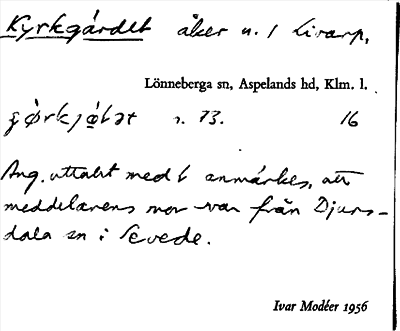 Kyrkgärdet åker n. 1 Livarp,
Lönneberga sn, Aspelands hd, Klm. l.
r. 73. 16
Ang. uttalet med t anmärkes, att
meddelarens mor var från Djurs-
dala sn i Sevede.
Ivar Modéer 1956